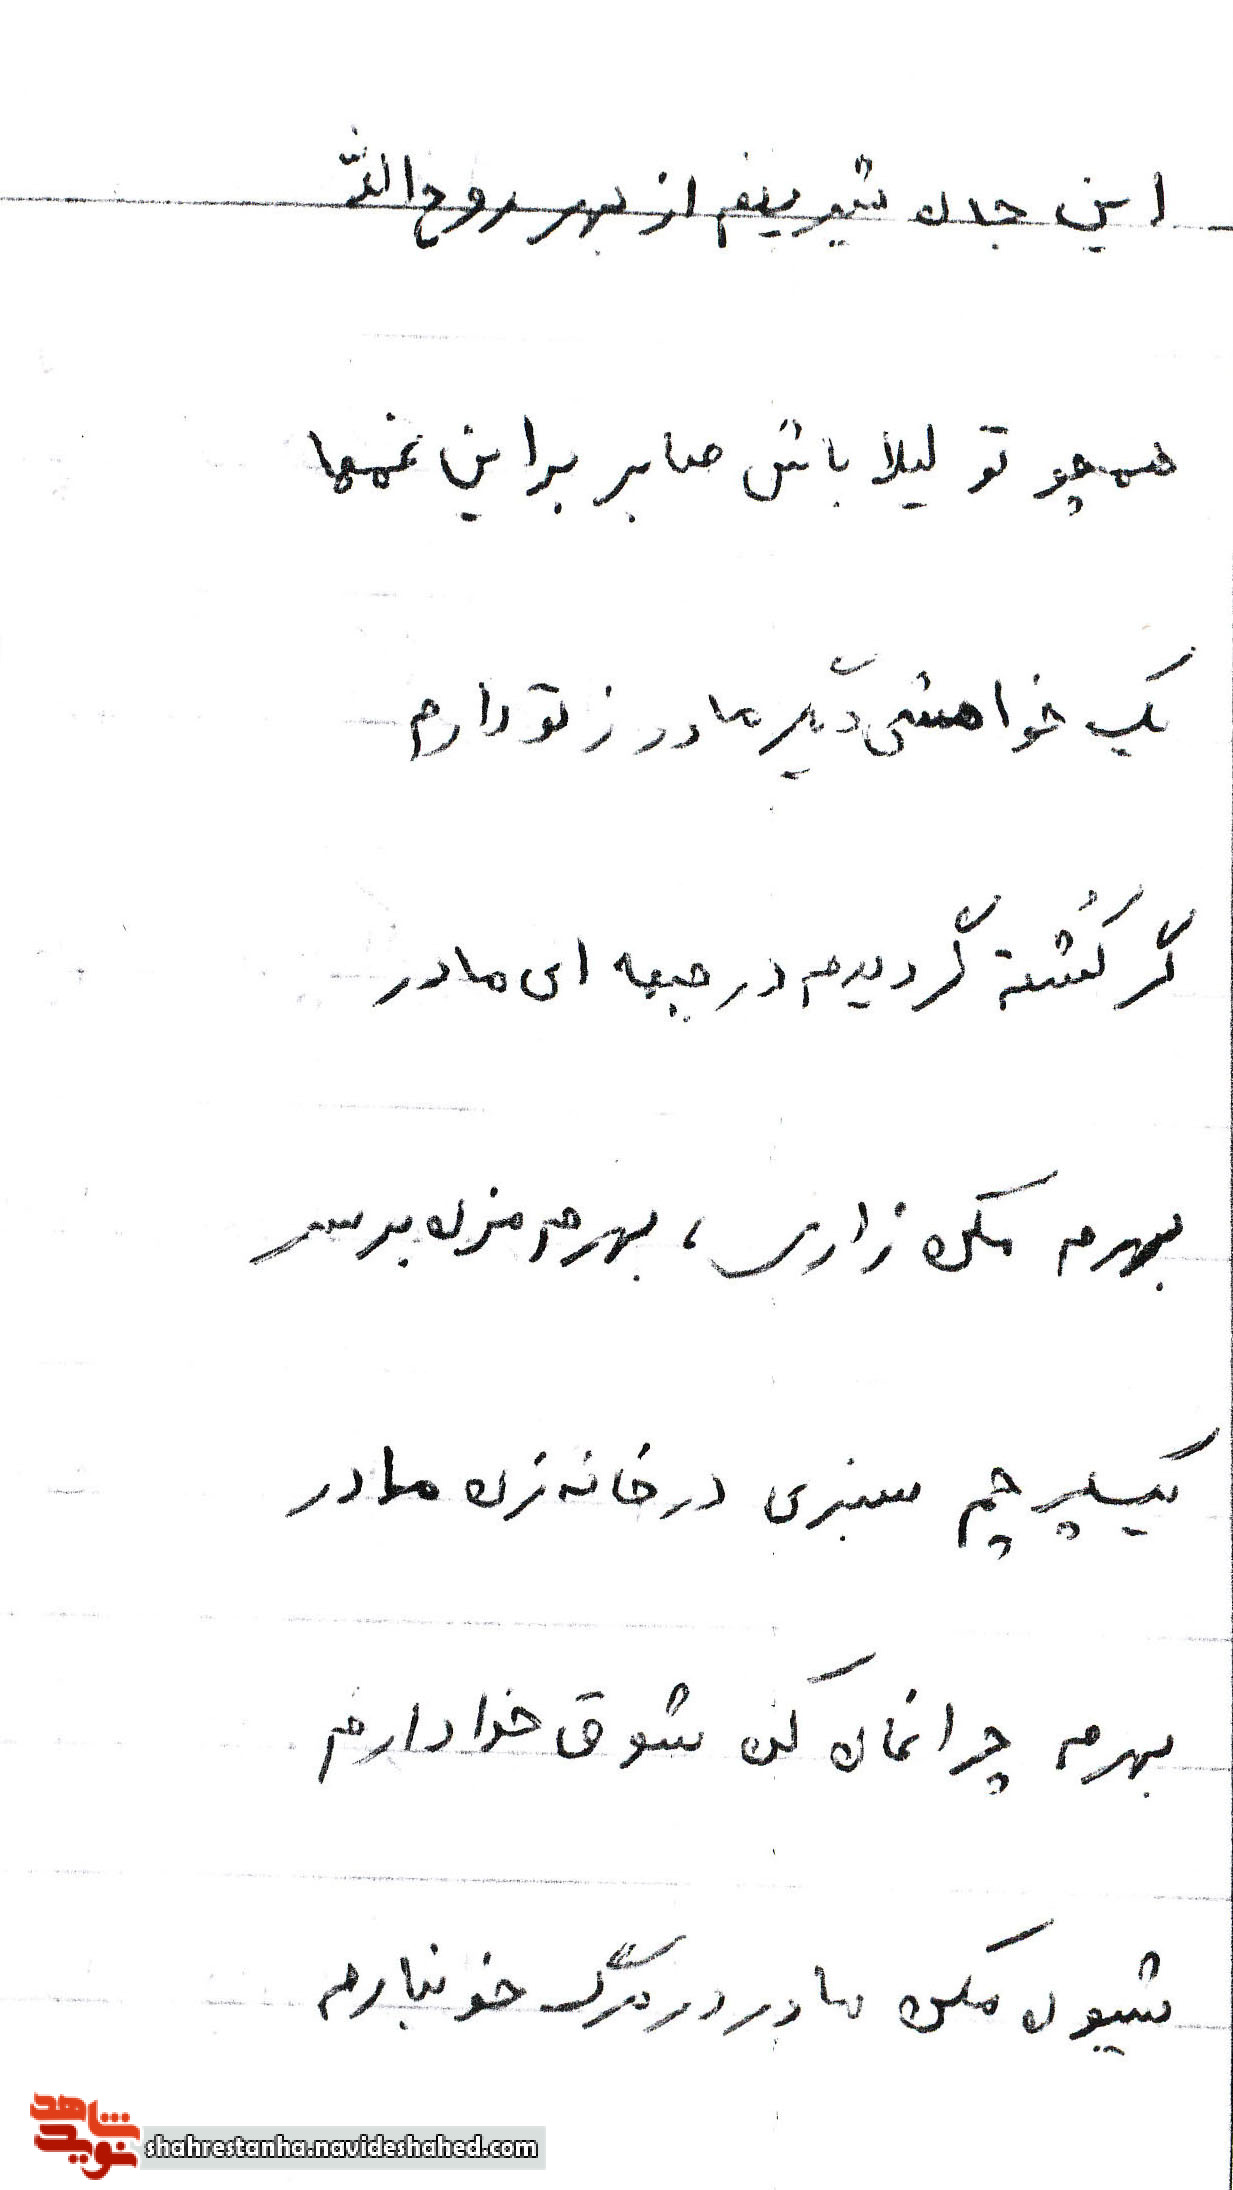 این جان شیرینم از بهر روح الله
همچو تو لیلا باش صابر براین غمها
یک خواهشی دیگر مادر ز تو دارم
گر کُشته گردیدم در جبهه ای مادر
بهرم مکن زاری، بهرم مزن بر سر
یک پرچم سبزی در خانه زن مادر
بهرم چراغان کن شوق خدا دارم
شیون مکن مادر در مرگ خونبارم
نوید شاهد
shahrestanha.navideshahed.com